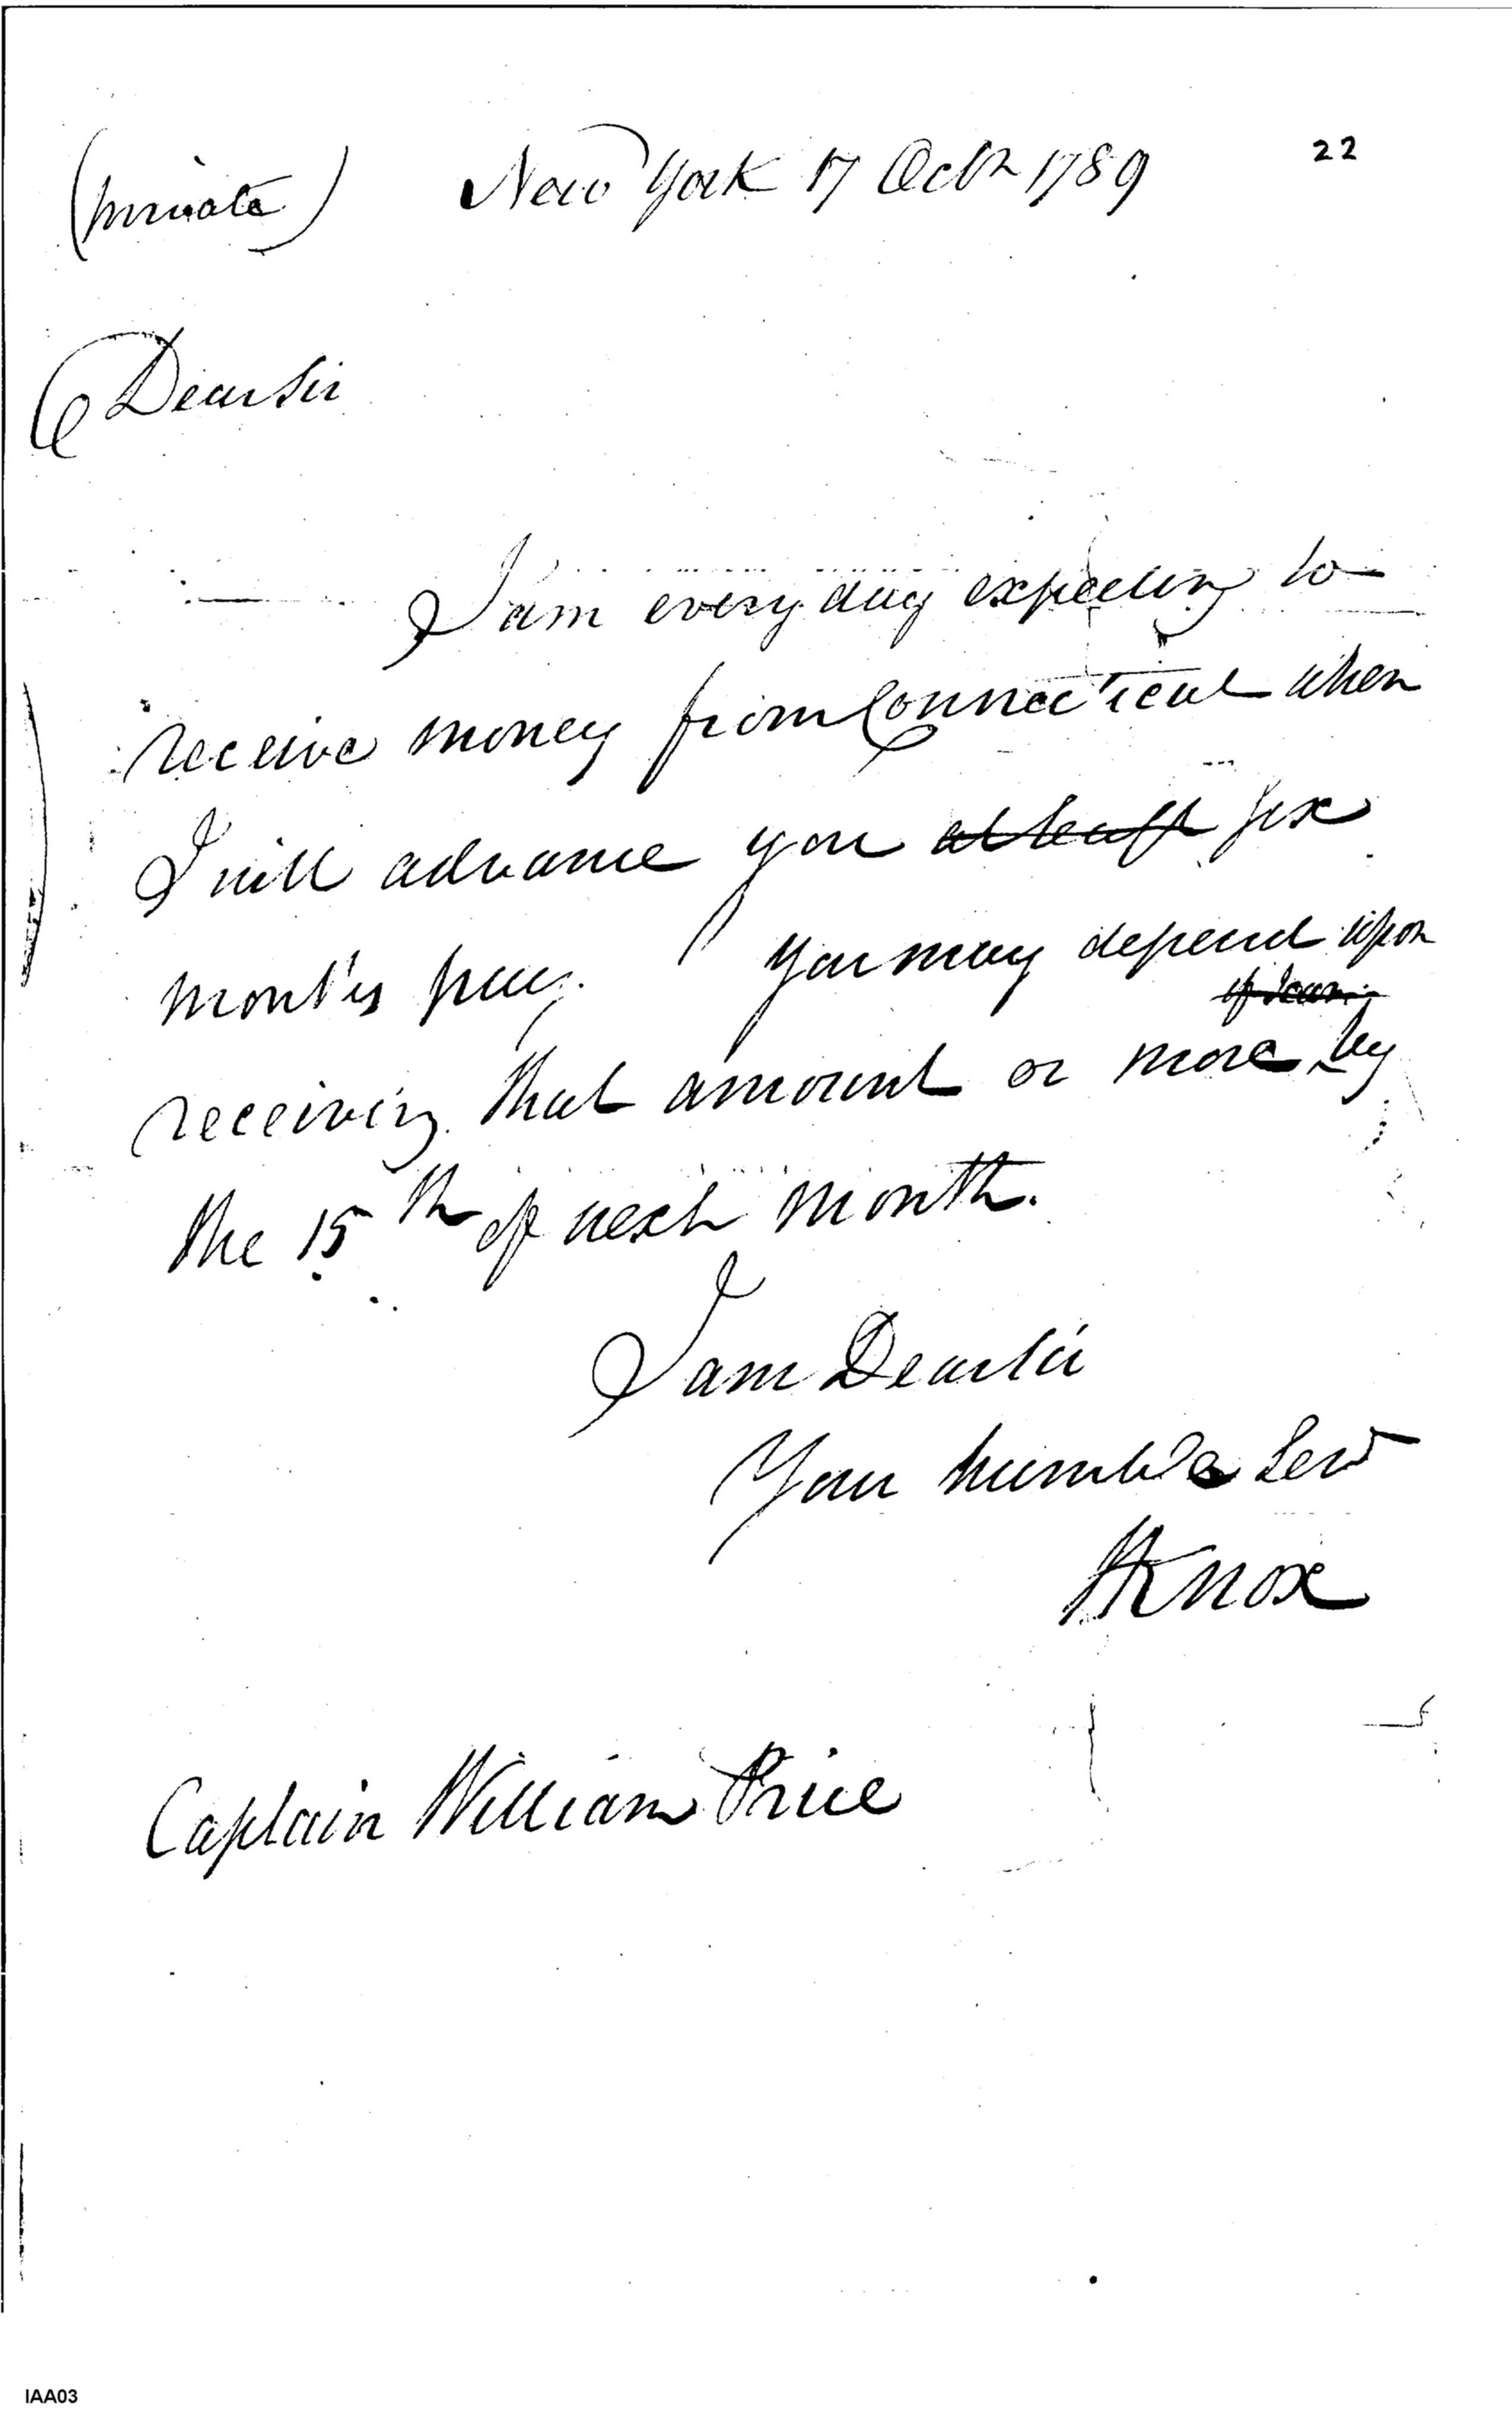 22
(private) New York 17 Octr 1789
Dear Sir
I am every day expecting to
receive money from Connecticut when
I will advance you at least six
months pay. You may depend upon
receiving that amount or more by
the 15th of next month.
I am Dear Sir
Your humble Servt
HKnox
Captain William Price
IAA03